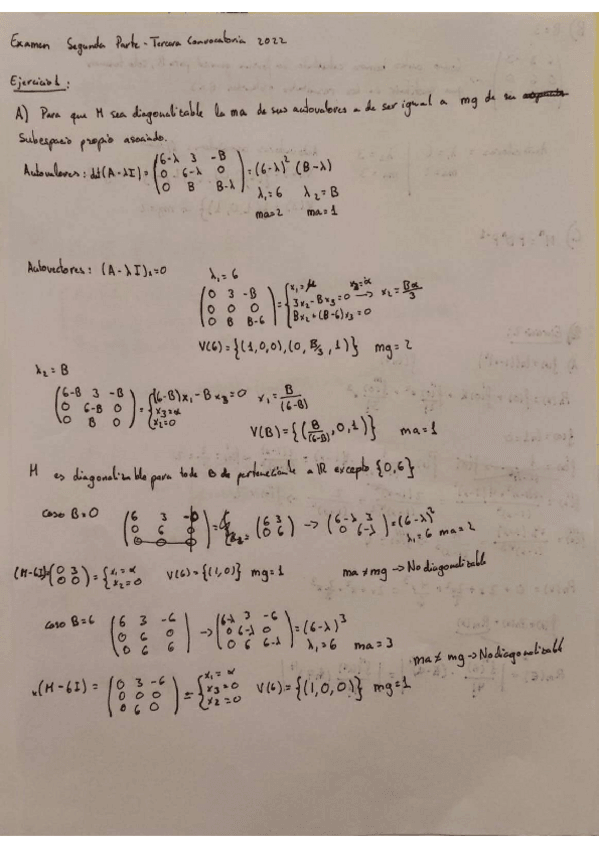 Examen Segunda Parte - Tercera Convocatoria 2022
Ejercicio 1:
A) Para que M sea diagonalizable la ma de sus autovalores a de ser igual a mg de su
Subespacio propio asociado.
Autovalores: det(A-λI) = (6-λ 3 -B / 0 6-λ 0 / 0 B B-λ) = (6-λ)² (B-λ)
λ₁=6 λ₂=B
ma=2 ma=1
Autovectores: (A-λI)ₓ=0 λ₁=6
(0 3 -B / 0 0 0 / 0 B B-6) = { x₁=μ x₃=α / 3x₂-Bx₃=0 → x₂=Bα/3 / Bx₂+(B-6)x₃=0
V(6)={(1,0,0),(0,B/3,1)} mg=2
λ₂=B
(6-B 3 -B / 0 6-B 0 / 0 B 0) = { (6-B)x₁-Bx₃=0 x₁=B/(6-B) / x₃=α / x₂=0
V(B)={(B/(6-B),0,1)} ma=1
M es diagonalizable para todo B de perteneciente a ℝ excepto {0,6}
caso B=0 (6 3 -0 / 0 6 0 / 0 0 0) = (6 3 / 0 6) → (6-λ 3 / 0 6-λ) = (6-λ)²
λ₁=6 ma=2
(M-6I) (0 3 / 0 0) = { x₁=α / x₂=0 V(6)={(1,0)} mg=1 ma≠mg → No diagonalizable
caso B=6 (6 3 -6 / 0 6 0 / 0 6 6) → (6-λ 3 -6 / 0 6-λ 0 / 0 6 6-λ) = (6-λ)³
λ₁=6 ma=3
ma≠mg → No diagonalizable
(M-6I) = (0 3 -6 / 0 0 0 / 0 6 0) = { x₁=α / x₃=0 / x₂=0 V(6)={(1,0,0)} mg=1